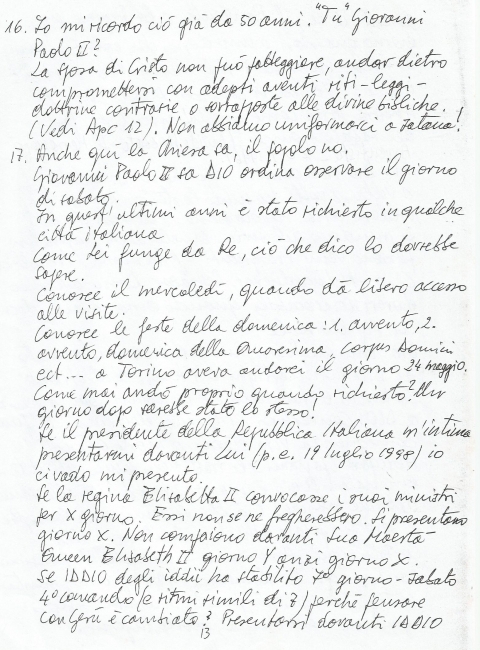 16. Io mi ricordo ciò già da 50 anni. "Tu" Giovanni
Paolo II?
La sposa di Cristo non può patteggiare, andar dietro
compromettersi con adepti aventi riti-leggi-
dottrine contrarie o sottoposte alle divine bibliche.
(Vedi Apc 12). Non abbiamo uniformarci a satana!
17. Anche qui la Chiesa sa, il popolo no.
Giovanni Paolo II sa DIO ordina osservare il giorno
di sabato.
In questi ultimi anni è stato richiesto in qualche
città italiana
Come Lei funge da Re, ciò che dico lo dovrebbe
sapere.
Conosce il mercoledì, quando dà libero accesso
alle visite.
Conosce le feste della domenica: 1. avvento, 2.
avvento, domenica della Quaresima, Corpus Domini
ect... a Torino aveva andarci il giorno 24 maggio.
Come mai andò proprio quando richiesto? Un
giorno dopo sarebbe stato lo stesso!
Se il presidente della Repubblica Italiana m'intima
presentarmi davanti Lui (p.e. 19 luglio 1998) io
ci vado mi presento.
Se la regina Elisabetta II convocasse i suoi ministri
per X giorno. Essi non se ne fregherebbero. Si presentano
giorno X. Non compaiono davanti Sua Maestà
Queen Elisabeth II giorno Y anzi giorno X.
Se IDDIO degli iddii ha stabilito 7° giorno-sabato
4° comando (e ritmi simili di 7) perché pensare
con Gesù è cambiato? Presentarsi davanti IDDIO
13